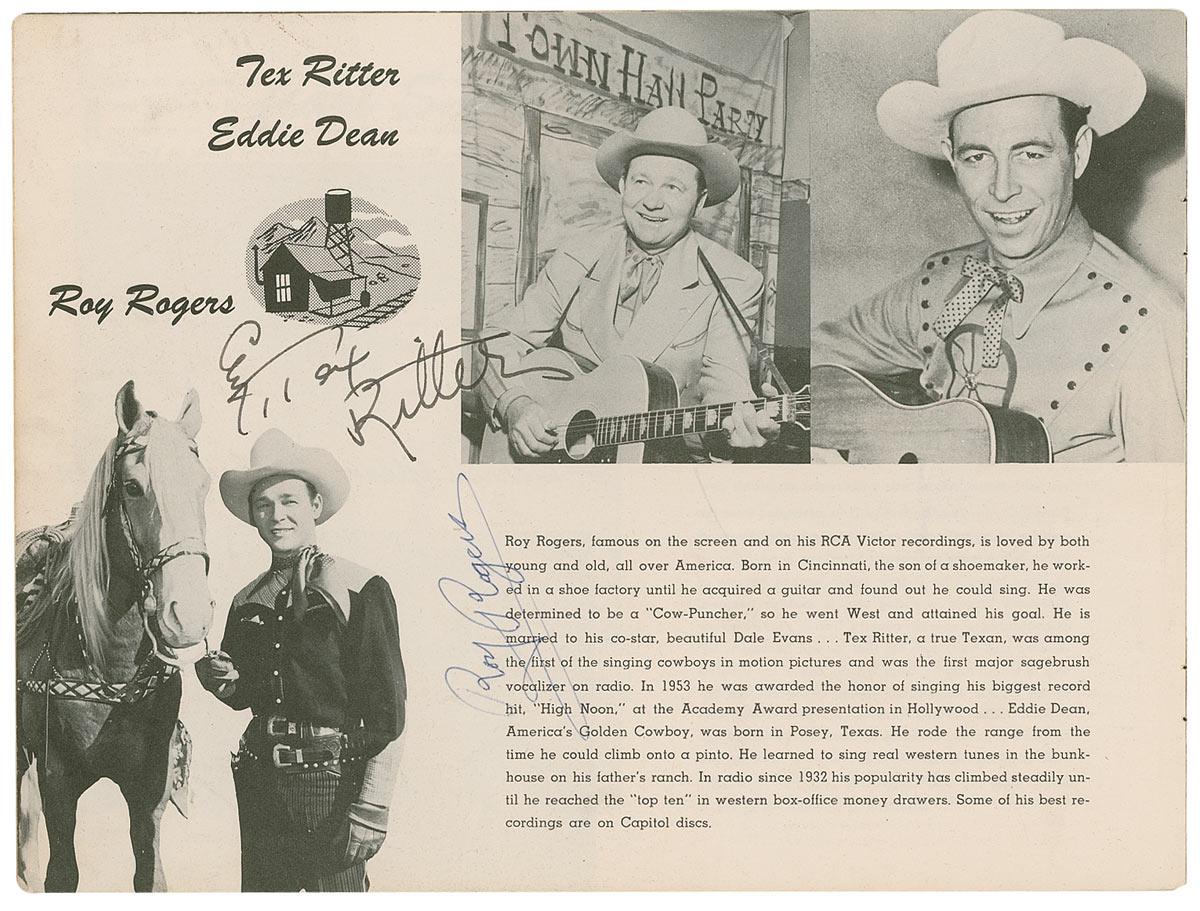 Tex Ritter
Eddie Dean
TOWN HALL PARTY
Roy Rogers
Tex Ritter
Roy Rogers
Roy Rogers, famous on the screen and on his RCA Victor recordings, is loved by both
young and old, all over America. Born in Cincinnati, the son of a shoemaker, he work-
ed in a shoe factory until he acquired a guitar and found out he could sing. He was
determined to be a "Cow-Puncher," so he went West and attained his goal. He is
married to his co-star, beautiful Dale Evans . . . Tex Ritter, a true Texan, was among
the first of the singing cowboys in motion pictures and was the first major sagebrush
vocalizer on radio. In 1953 he was awarded the honor of singing his biggest record
hit, "High Noon," at the Academy Award presentation in Hollywood . . . Eddie Dean,
America's Golden Cowboy, was born in Posey, Texas. He rode the range from the
time he could climb onto a pinto. He learned to sing real western tunes in the bunk-
house on his father's ranch. In radio since 1932 his popularity has climbed steadily un-
til he reached the "top ten" in western box-office money drawers. Some of his best re-
cordings are on Capitol discs.